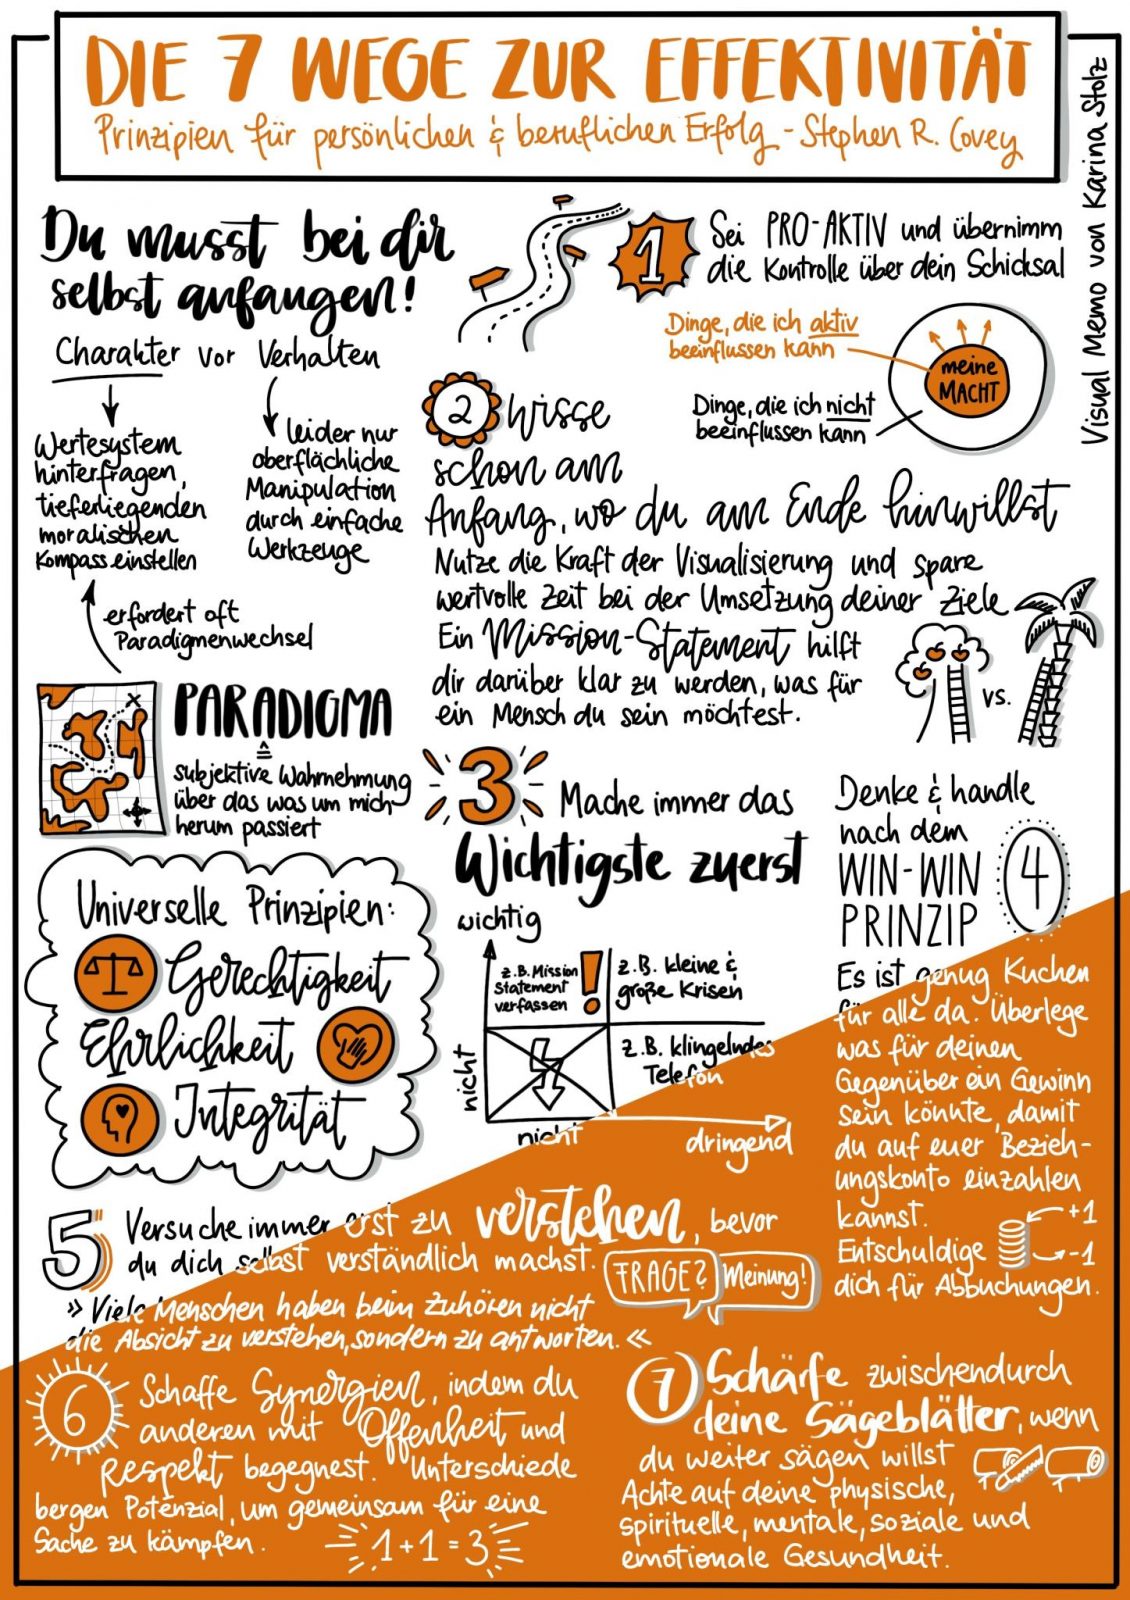 DIE 7 WEGE ZUR EFFEKTIVITÄT
Prinzipien für persönlichen & beruflichen Erfolg - Stephen R. Covey
Visual Memo von Karina Stolz
Du musst bei dir
selbst anfangen!
Charakter vor Verhalten
Wertesystem
hinterfragen,
tieferliegenden
moralischen
Kompass einstellen
leider nur
oberflächliche
Manipulation
durch einfache
Werkzeuge
erfordert oft
Paradigmenwechsel
PARADIGMA
≙
subjektive Wahrnehmung
über das was um mich
herum passiert
Universelle Prinzipien:
Gerechtigkeit
Ehrlichkeit
Integrität
1
Sei PRO-AKTIV und übernimm
die Kontrolle über dein Schicksal
Dinge, die ich aktiv
beeinflussen kann
meine
MACHT
Dinge, die ich nicht
beeinflussen kann
2 Wisse
schon am
Anfang, wo du am Ende hinwillst
Nutze die Kraft der Visualisierung und spare
wertvolle Zeit bei der Umsetzung deiner Ziele
Ein Mission-Statement hilft
dir darüber klar zu werden, was für
ein Mensch du sein möchtest.
vs.
3 Mache immer das
Wichtigste zuerst
wichtig
z.B. Mission
Statement
verfassen
!
z.B. kleine &
große Krisen
z.B. klingelndes
Telefon
nicht
nicht
dringend
Denke & handle
nach dem
WIN-WIN
PRINZIP
4
Es ist genug Kuchen
für alle da. Überlege
was für deinen
Gegenüber ein Gewinn
sein könnte, damit
du auf euer Bezieh-
ungskonto einzahlen
kannst.
+1
-1
Entschuldige
dich für Abbuchungen.
5 Versuche immer erst zu verstehen, bevor
du dich selbst verständlich machst.
FRAGE?
Meinung!
» Viele Menschen haben beim Zuhören nicht
die Absicht zu verstehen, sondern zu antworten. «
6 Schaffe Synergien, indem du
anderen mit Offenheit und
Respekt begegnest. Unterschiede
bergen Potenzial, um gemeinsam für eine
Sache zu kämpfen.
1+1=3
7 Schärfe zwischendurch
deine Sägeblätter, wenn
du weiter sägen willst
Achte auf deine physische,
spirituelle, mentale, soziale und
emotionale Gesundheit.